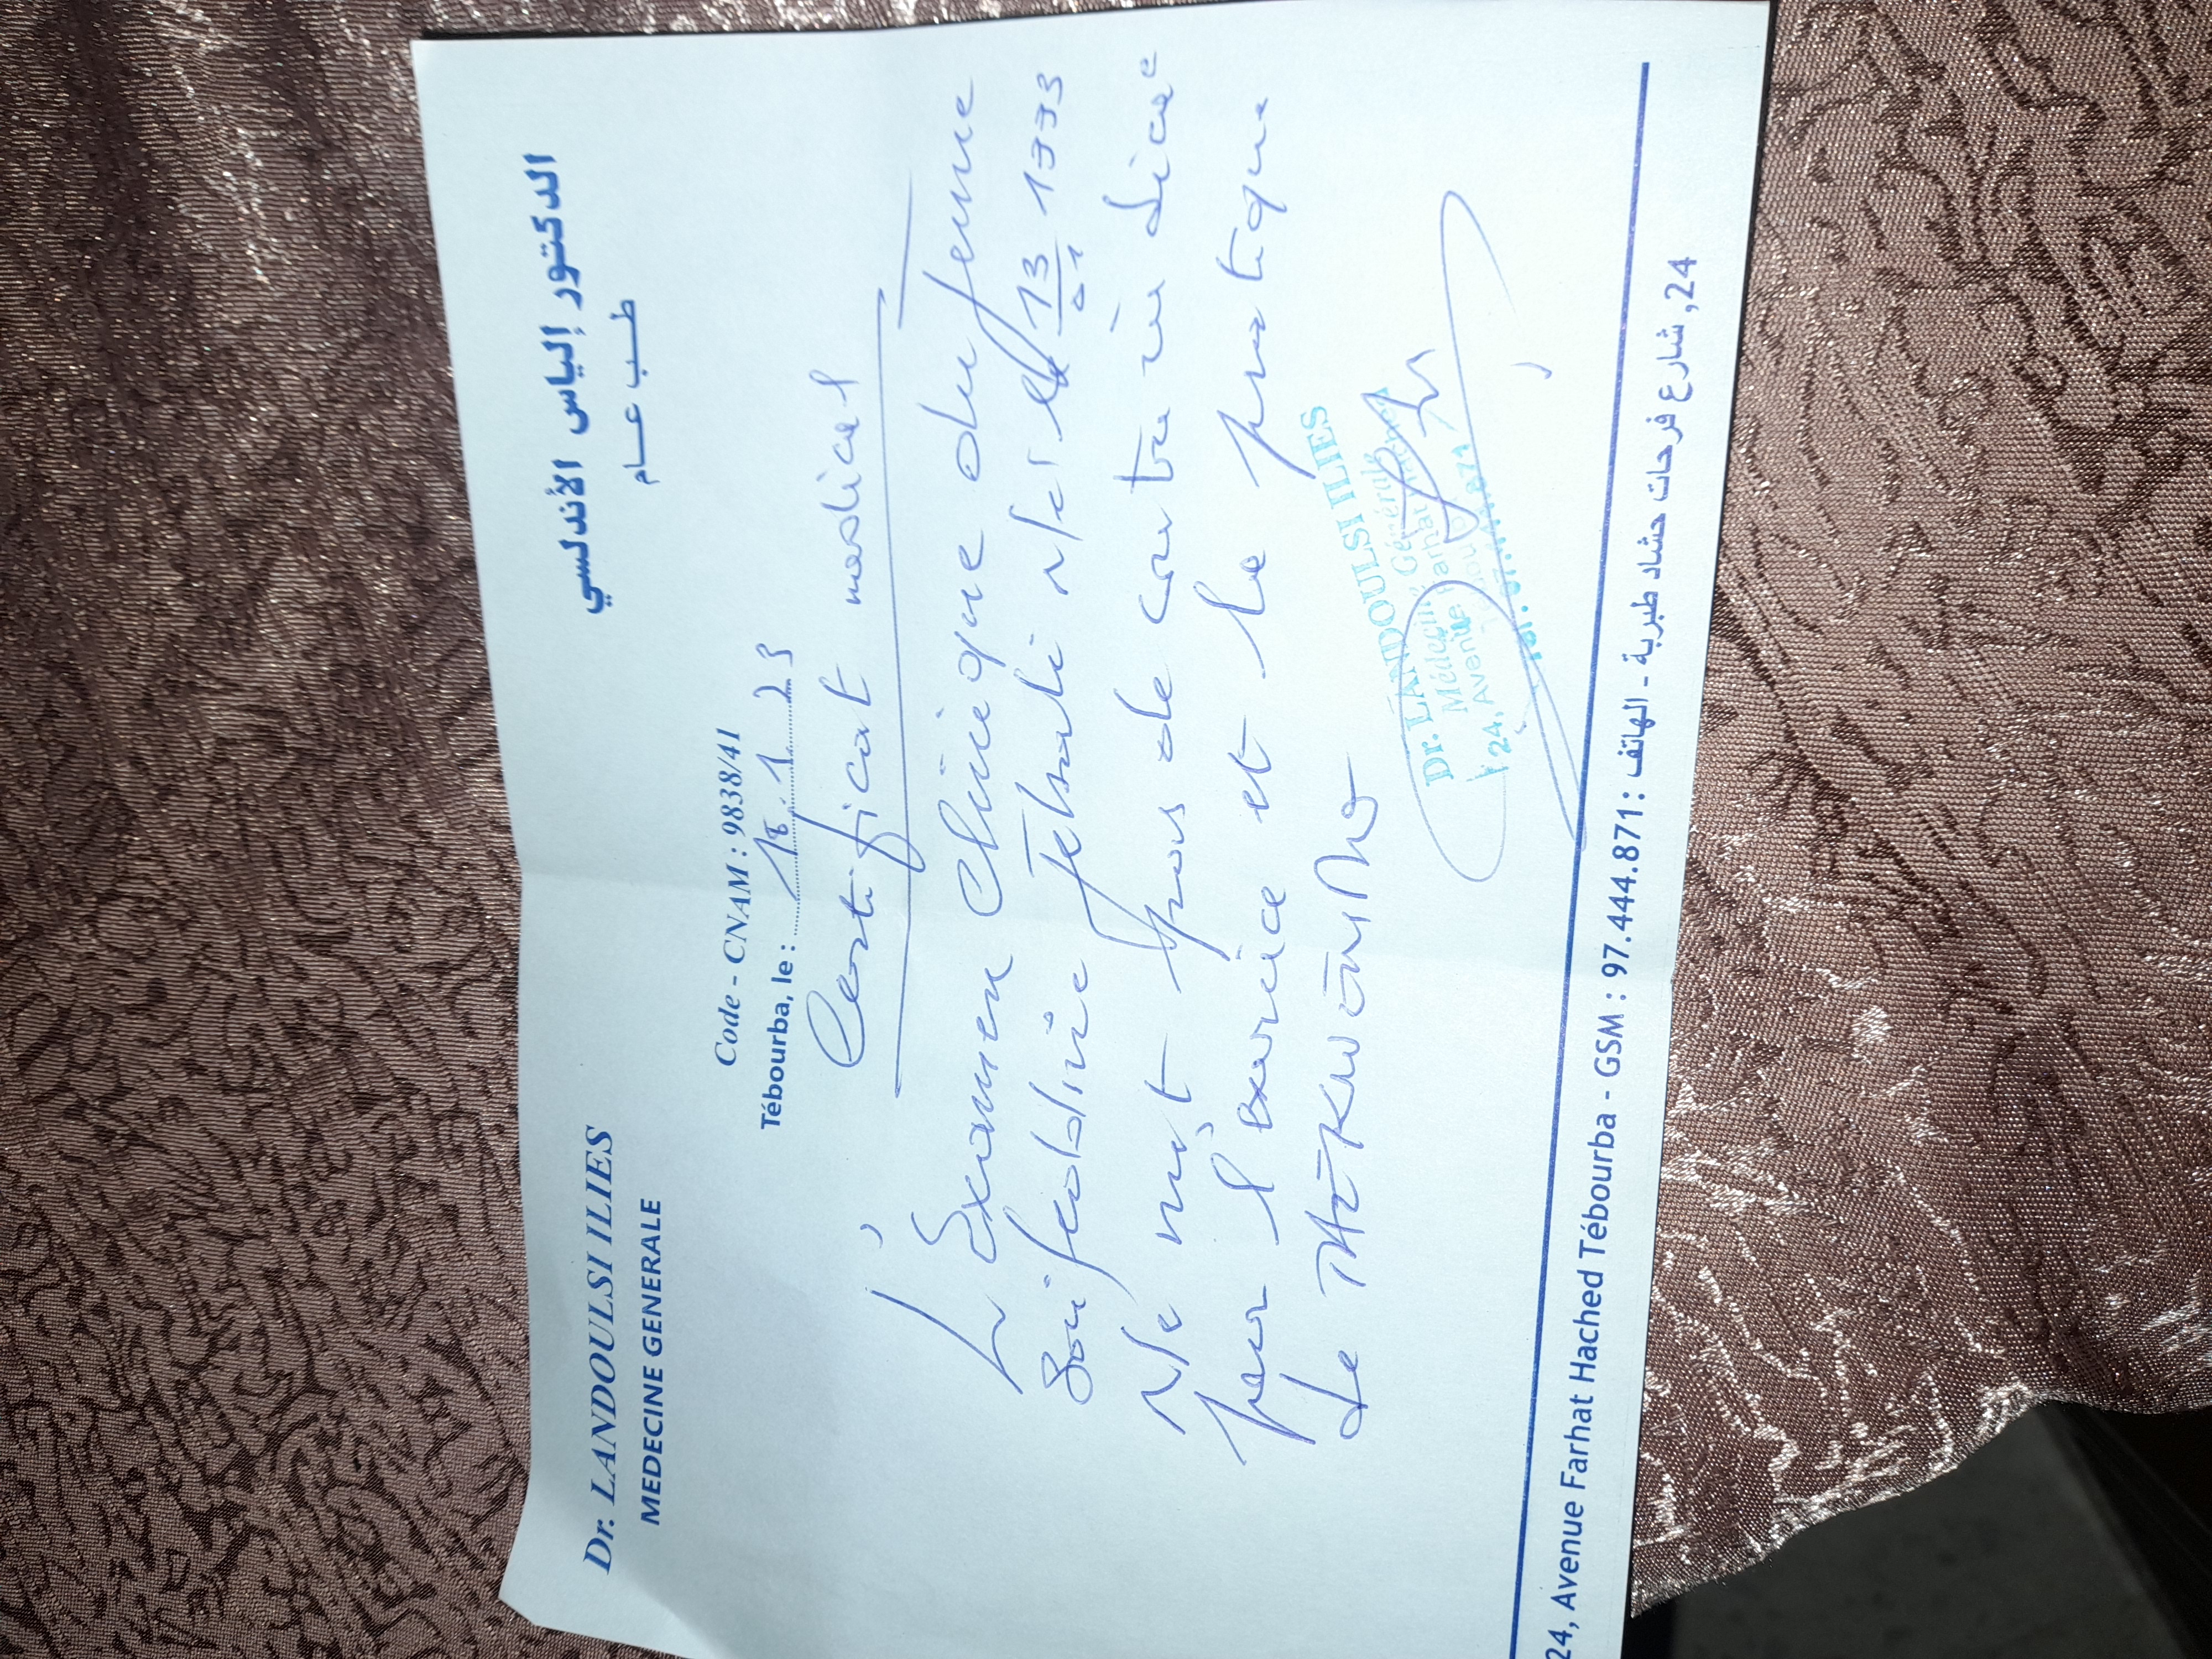 Dr. LANDOULSI ILIES
MEDECINE GENERALE
الدكتور إلياس الأندلسي
طب عام
Code - CNAM : 9838/41
Tébourba, le : 18.1.23
Certificat medical
L'Examen Clinique du jeune
né le 13
01
Ne mit pas de contre in dicae
pour l'exercice et la pratique
de TAEKWENDO
Dr. LANDOULSI ILIES
Médecine Générale
24, Avenue Farhat
24, Avenue Farhat Hached Tébourba - GSM : 97.444.871 : الهاتف - 24, شارع فرحات حشاد طبربة